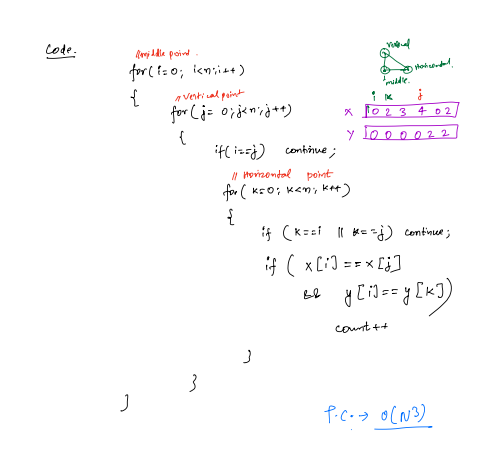 Code.
// middle point.
for(i=0; i<n; i++)
{
// vertical point
for(j= 0; j<n; j++)
{
if(i==j) continue;
// Horizontal point
for( k=0; k<n; k++)
{
if (k==i || k==j) continue;
if ( x[i]==x[j]
&& y[i]==y[k])
count++
}
}
}
vertical
Horizontal.
middle.
i k j
x 1 0 2 3 4 0 2
y 1 0 0 0 0 2 2
T.C. → O(N3)